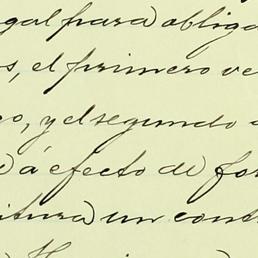 gal para obliga
s, el primero ve
o, y el segundo
á efecto de for
itura un cont